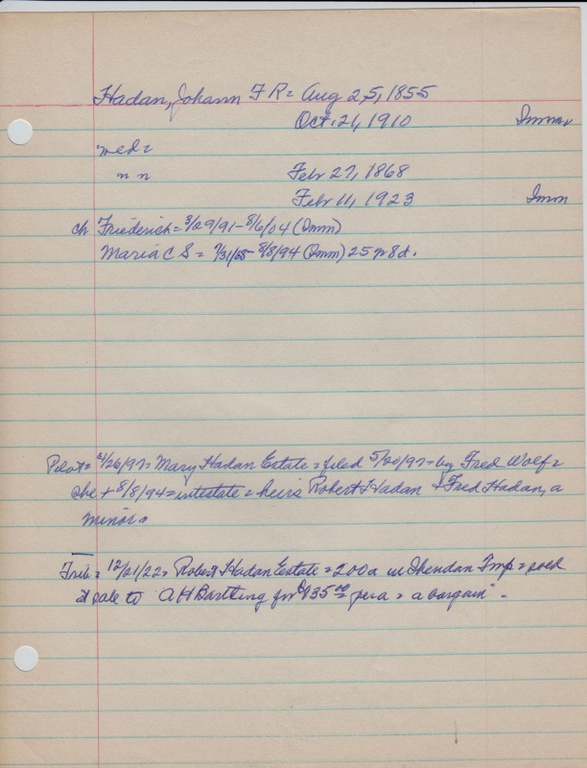 Hadan, Johann F R = Aug 25, 1855
Oct. 21, 1910 Imman
med =
n n Feb 27, 1868
Feb 11, 1923 Imm
ch Friederich = 3/29/91 - 8/6/04 (Imm)
Maria C S = 7/31/68 - 8/8/94 (Imm) 25 yr 8d.
Pilot = 4/26/97 = Mary Hadan Estate = filed 5/20/97 = by Fred Wolf =
she + 8/8/94 = intestate = heirs Robert Hadan & Fred Hadan, a
minor.
Trib = 12/21/22 = Robert Hadan Estate = 200a in Sheridan Tmp = sold
at sale to A H Bartling for $135.00 per a = a bargain".